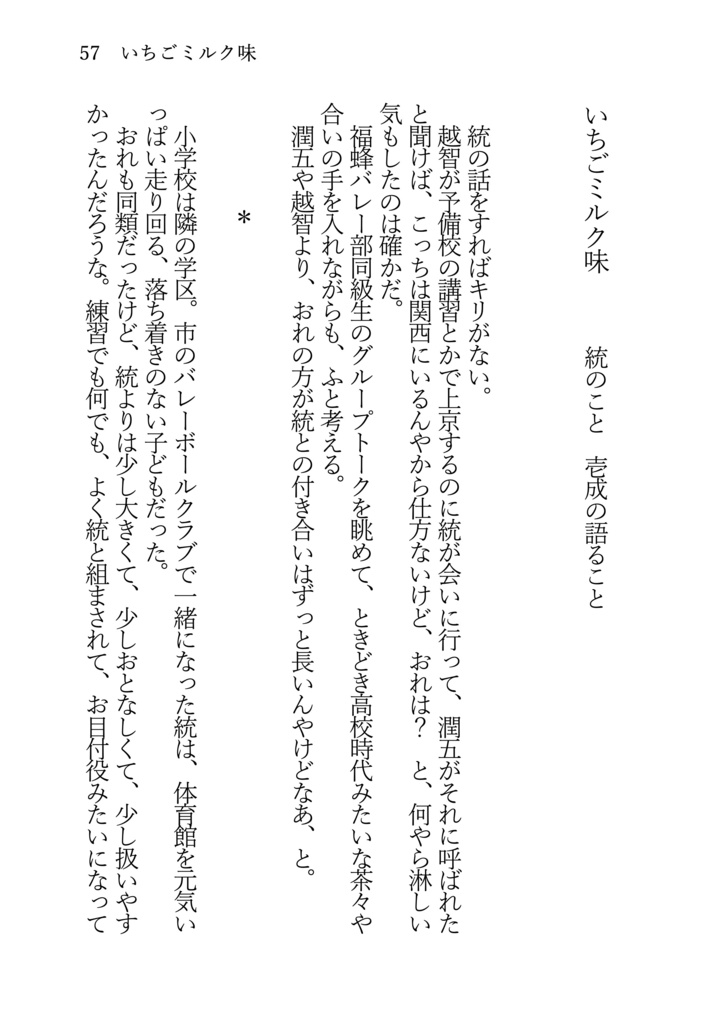 57 いちごミルク味
いちごミルク味　　統のこと　壱成の語ること
統の話をすればキリがない。
越智が予備校の講習とかで上京するのに統が会いに行って、潤五がそれに呼ばれた
と聞けば、こっちは関西にいるんやから仕方ないけど、おれは？　と、何やら淋しい
気もしたのは確かだ。
福蜂バレー部同級生のグループトークを眺めて、ときどき高校時代みたいな茶々や
合いの手を入れながらも、ふと考える。
潤五や越智より、おれの方が統との付き合いはずっと長いんやけどなあ、と。
＊
小学校は隣の学区。市のバレーボールクラブで一緒になった統は、体育館を元気い
っぱい走り回る、落ち着きのない子どもだった。
おれも同類だったけど、統よりは少し大きくて、少しおとなしくて、少し扱いやす
かったんだろうな。練習でも何でも、よく統と組まされて、お目付役みたいになって